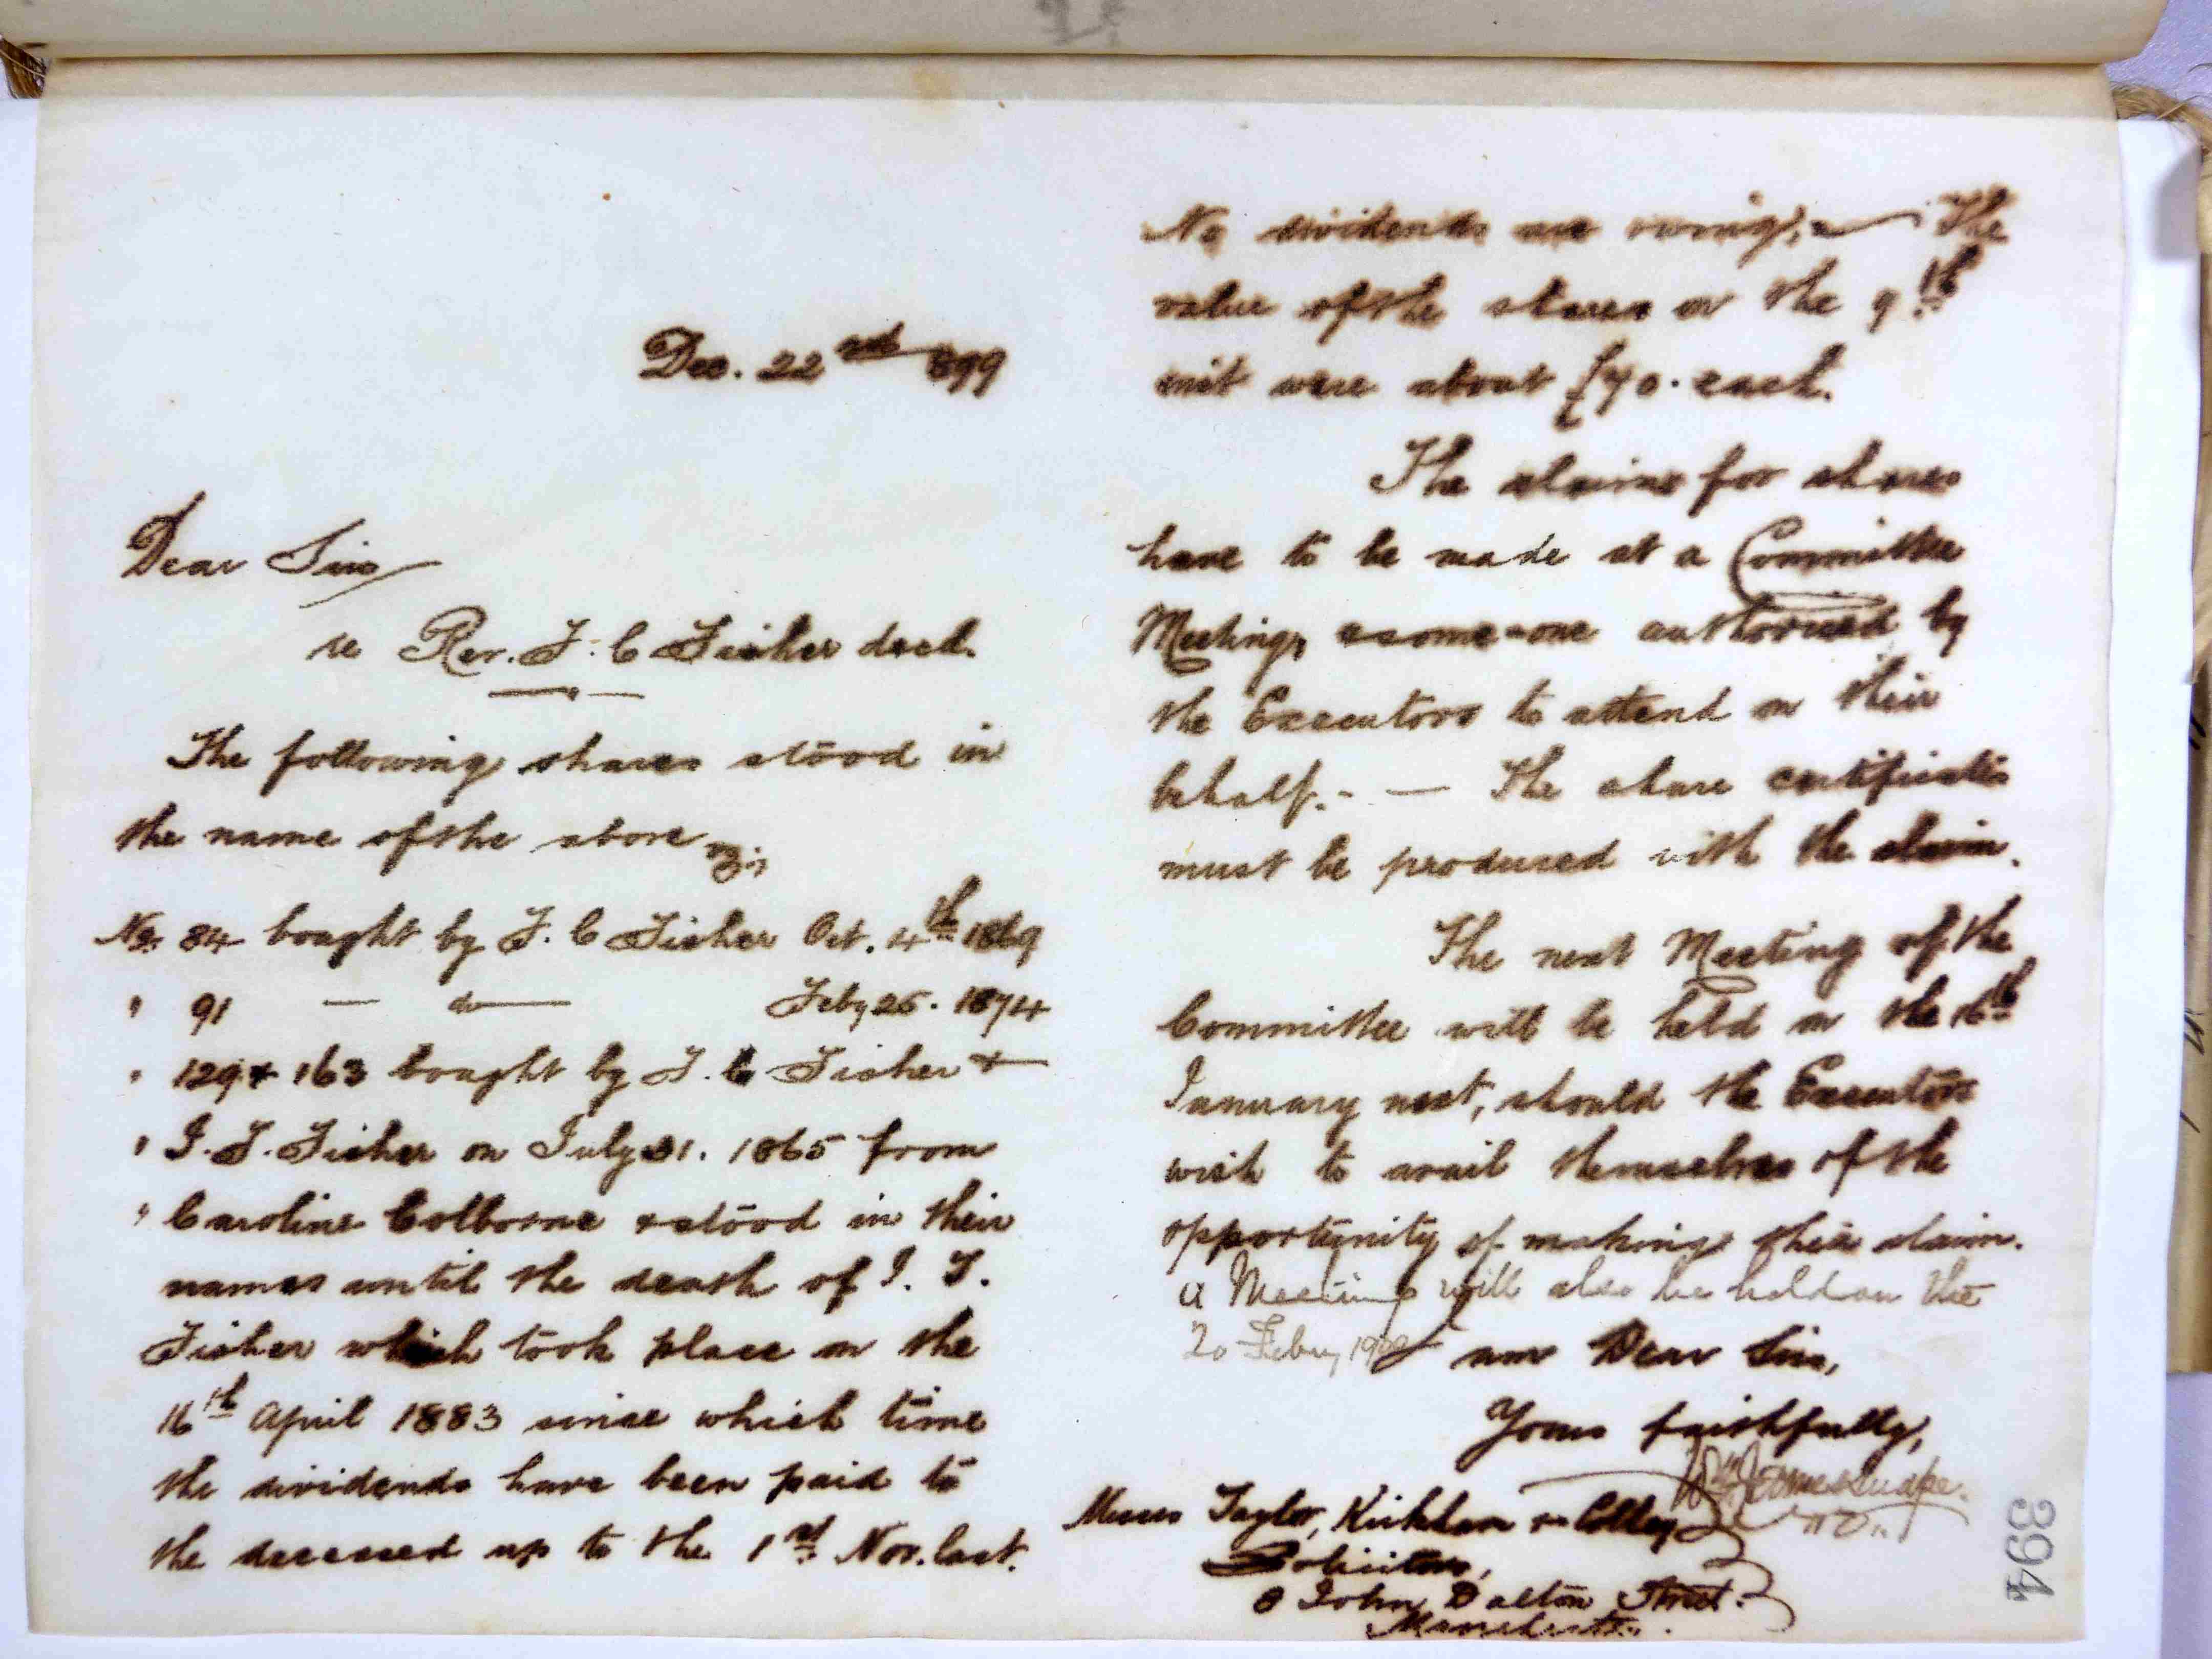 Dec. 22nd 899
Dear Sirs
re Rev. F. C Fisher decd.
The following shares stood in
the name of the above viz:,
No. 84 bought by F. C Fisher Oct. 4th 1869
" 91 — do — Feby 26. 1874
" 129 & 163 bought by F. C Fisher &
" I. T. Fisher on July 31. 1865 from
" Caroline Colborne & stood in their
names until the death of I. T.
Fisher which took place on the
16th April 1883 since which time
the dividends have been paid to
the deceased up to the 1st Nov. last.
No dividends are owing, — The
value of the shares on the 9th
inst were about £70. each.
The claims for shares
have to be made at a Committee
Meeting, & some-one authorised by
the Executors to attend on their
behalf. - — The share certificates
must be produced with the claim.
The next Meeting of the
Committee will be held on the 16th
January next, should the Executors
wish to avail themselves of the
opportunity of making their claim.
a Meeting will also be held on the
20 Feby 1900 I am Dear Sirs,
Yours faithfully,
Messrs Taylor, Kirkham & Colley
Solicitors,
8 John Dalton Street.
Manchester.
394